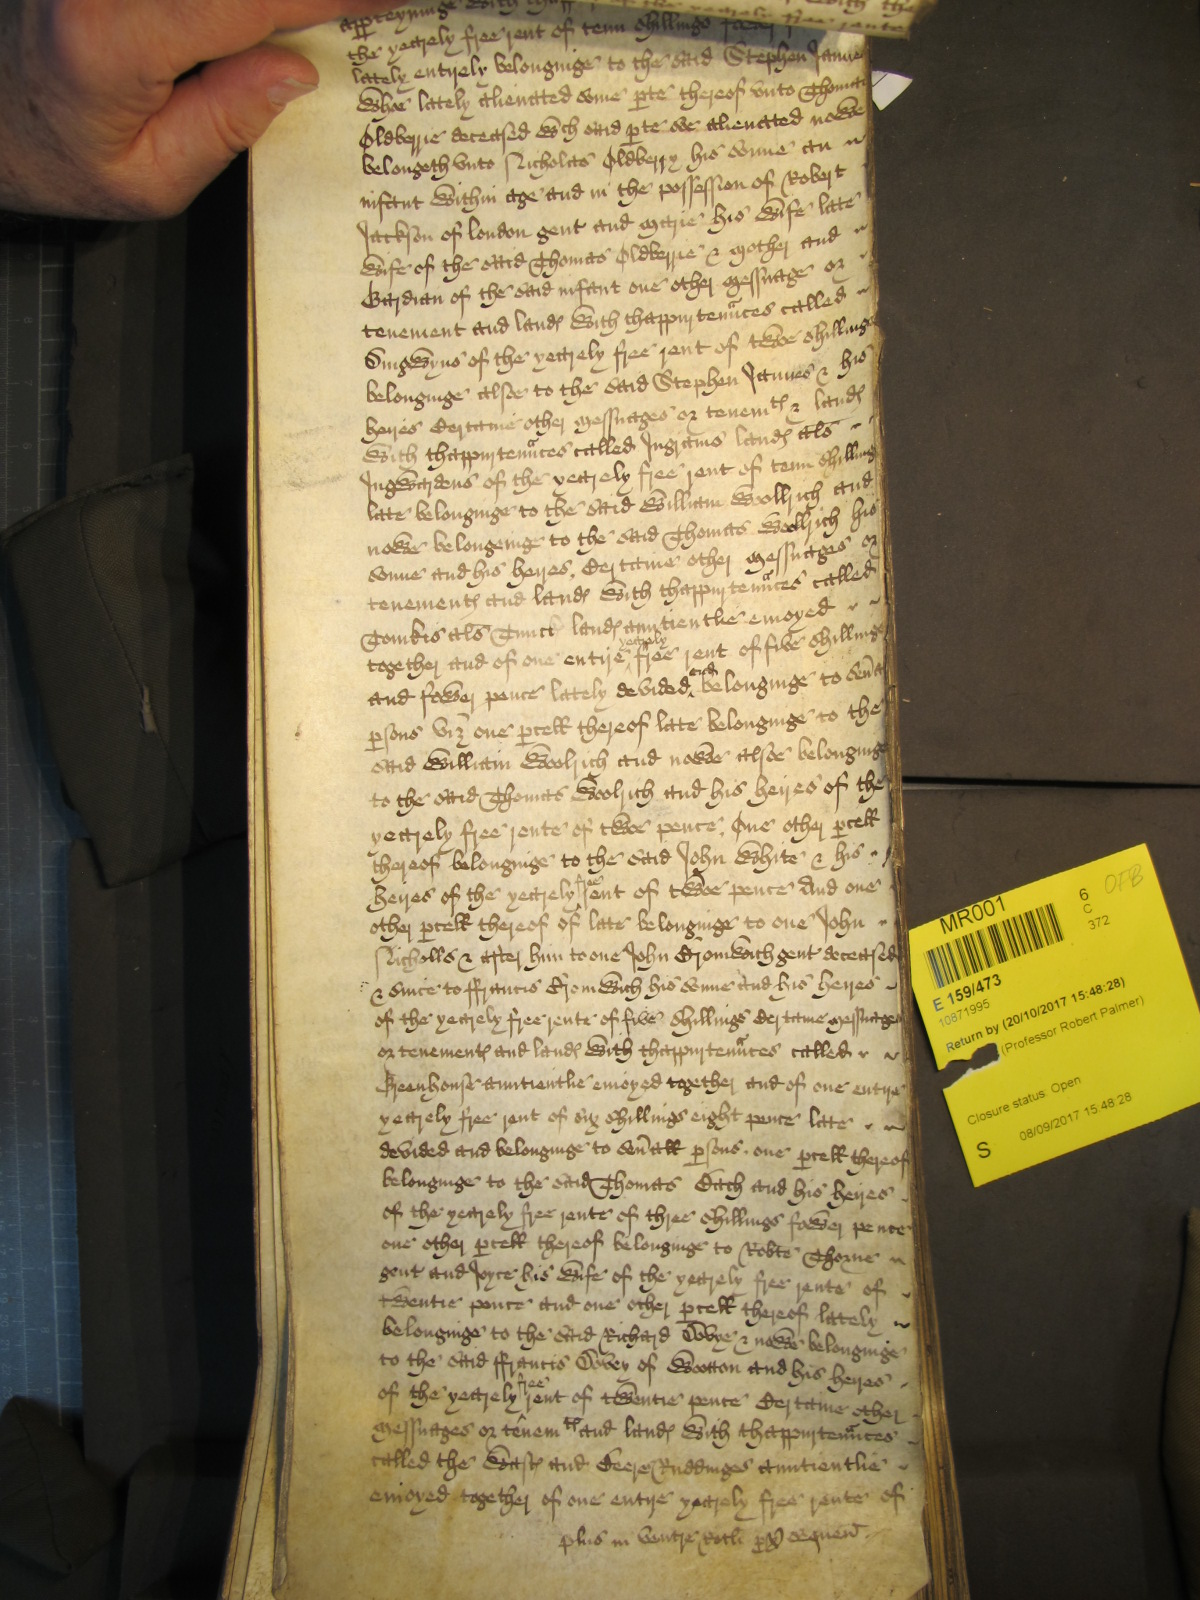 apperteyninge with
the yearely free rent of tenn shillings
lately entyrely belonginge to the said Stephen Jannes
whoe lately alienated some pte thereof vnto Thomas
Oldberrie deceased wch said pte soe alienated nowe
belongeth vnto Nicholas Oldberry his sonne an
infant within age and in the possession of Robert
Jackson of london gent and Marie his wife late
wife of the said Thomas Oldberrie & mother and
Gardian of the said infant one other messuage or
tenement and lands with thappurtenances called
Singwyns of the yearely free rent of twoe shillings
belonginge alsoe to the said Stephen Jannes & his
heires Certaine other messuages or tenemts & lands
with thappurtenances called Ingrams lands als
Ingwardens of the yearely free rent of tenn shillings
late belonginge to the said William Woolrich and
nowe belongeinge to the said Thomas Woolrich his
sonne and his heires. Certaine other messuages or
tenements and lands with thappurtenances called
Tomkis als Tinck lands auntientlie enioyed
together and of one entire yearely free rent of five shillings
and fower pence lately devided and belonginge to seu'all
psons viz one pcell thereof late belonginge to the
said William Woolrich and nowe alsoe belonginge
to the said Thomas Woolrich and his heires of the
yearely free rente of twoe pence. One other pcell
thereof belonginge to the said John White & his
heires of the yearely free rent of twoe pence And one
other pcell thereof of late belonginge to one John
Nicholls & after him to one John Cromwich gent deceased
& since to ffrancis Cromwich his sonne and his heires
of the yearely free rente of five shillings Certaine messuages
or tenements and lands with thappurtenances called
Greenhouse auntientlie enioyed together and of one entyre
yearely free rent of six shillings eight pence late
devided and belonginge to seu'all psons. one pcell thereof
belonginge to the said Thomas Cach and his heires
of the yearely free rente of three shillings fower pence
one other pcell thereof belonginge to Robte Thorne
gent and Joyce his wife of the yearely free rente of
twentie pence and one other pcell thereof lately
belonginge to the said Richard Cobye & nowe belonginge
to the said ffrancis Cobey of Wootton and his heires
of the yearely free rent of twentie pence Certaine other
messuages or tenemts and lands with thappurtenances
called the Wast and Ruddinges auntientlie
enioyed together of one entyre yearely free rente of
plus in
MR001
6
C
372
OFB
E 159/473
10871995
Return by (20/10/2017 15:48:28)
(Professor Robert Palmer)
Closure status: Open
S
08/09/2017 15:48:28